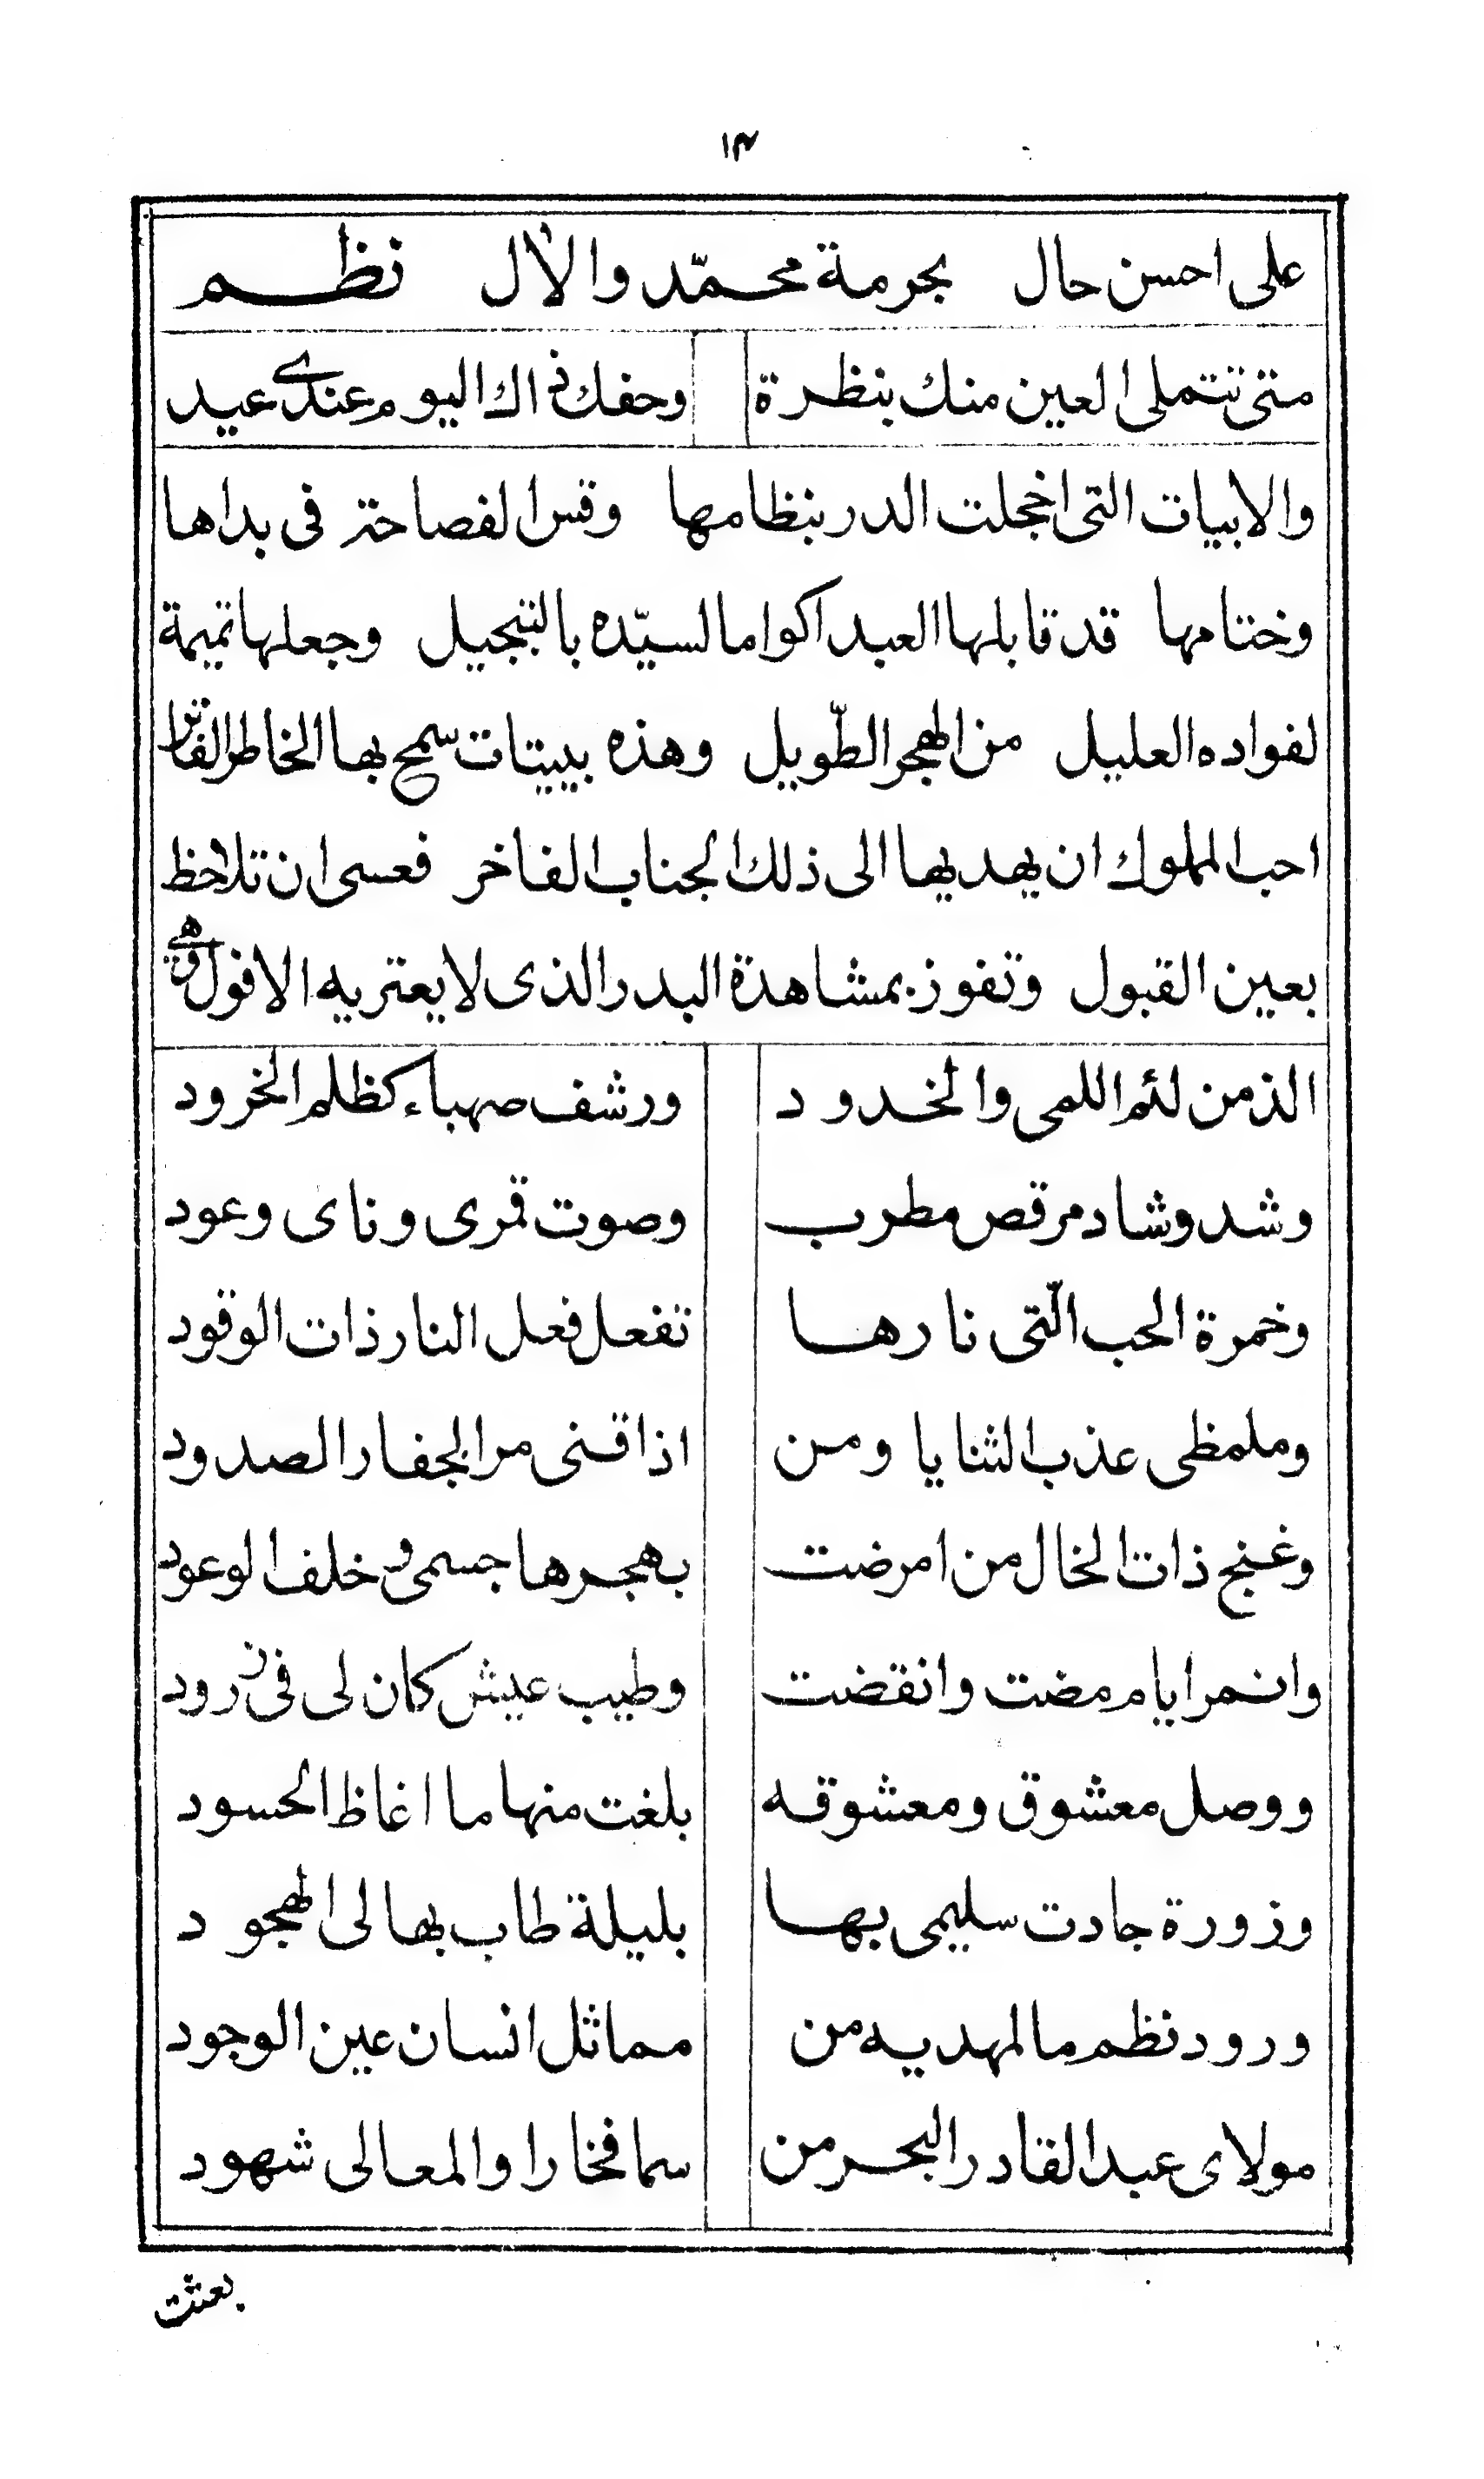 ١٣
على احسن حال بحرمة محمّد والال نظم
متى تتملى العين منك بنظرة وحقك ذاك اليوم عندى عيد
والابيات التى اخجلت الدر بنظامها وقس الفصاحة فى بداها
وختامها قد قابلها العبد اكراما لسيّده بالتبجيل وجعلها تميمة
لفواده العليل من الهجر الطّويل وهذه بييتات سمح بها الخاطر الفاتر
احب المملوك ان يهديها الى ذلك الجناب الفاخر فعسى ان تلاحظ
بعين القبول وتفوز بمشاهدة البدر الذى لا يعتريه الافول وهى
الذ من لثم اللمى والخدود ورشف صهباء كظلم الخرود
وشد وشاد مرقص مطرب وصوت قمرى وناى وعود
وخمرة الحب الّتى نارها تفعل فعل النار ذات الوقود
وملمظى عذب الثنايا ومن اذاقنى مر الجفا والصدود
وغنج ذات الخال من امرضت بهجرها جسمى وخلف الوعود
وانس مرايام مضت وانقضت وطيب عيش كان لى فى زرود
ووصل معشوق ومعشوقه بلغت منها ما اغاظ الحسود
وزورة جادت سليمى بها بليلة طاب بها لى الهجود
ورود نظم ما لمهديه من مماثل انسان عين الوجود
مولاى عبد القادر البحر من سما فخارا والمعالى شهود
بعثت